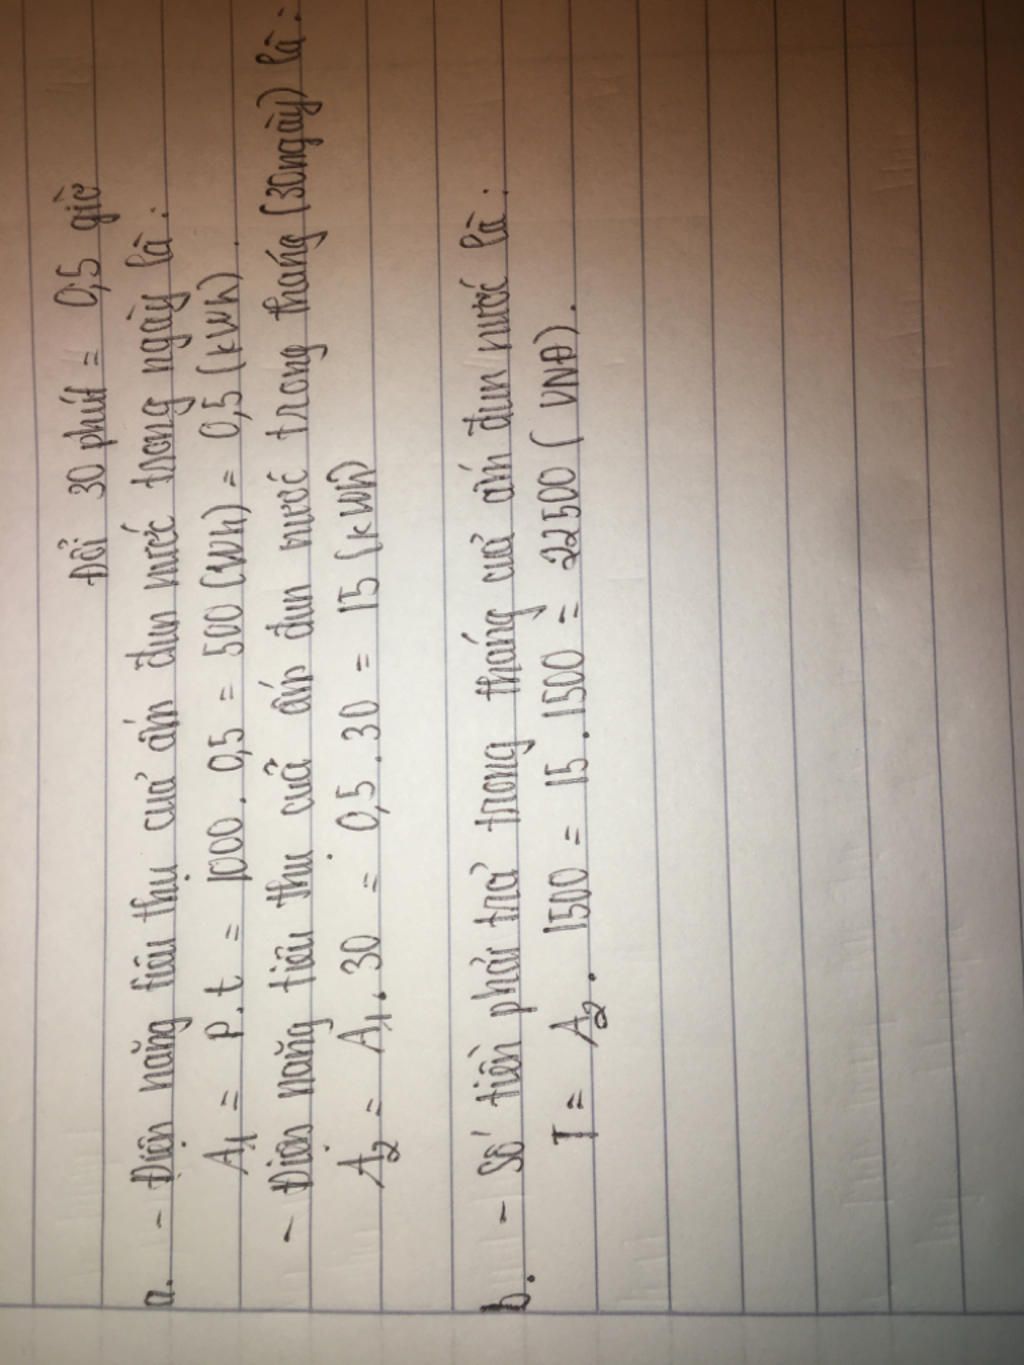 Đổi 30 phút = 0,5 giờ
a. - Điện năng tiêu thụ của ấm đun nước trong ngày là:
A₁ = P.t = 1000.0,5 = 500 (Wh) = 0,5 (kWh).
- Điện năng tiêu thụ của ấm đun nước trong tháng (30 ngày) là:
A₂ = A₁.30 = 0,5.30 = 15 (kWh)
b. - Số tiền phải trả trong tháng của ấm đun nước là:
T = A₂. 1500 = 15.1500 = 22500 (VNĐ).